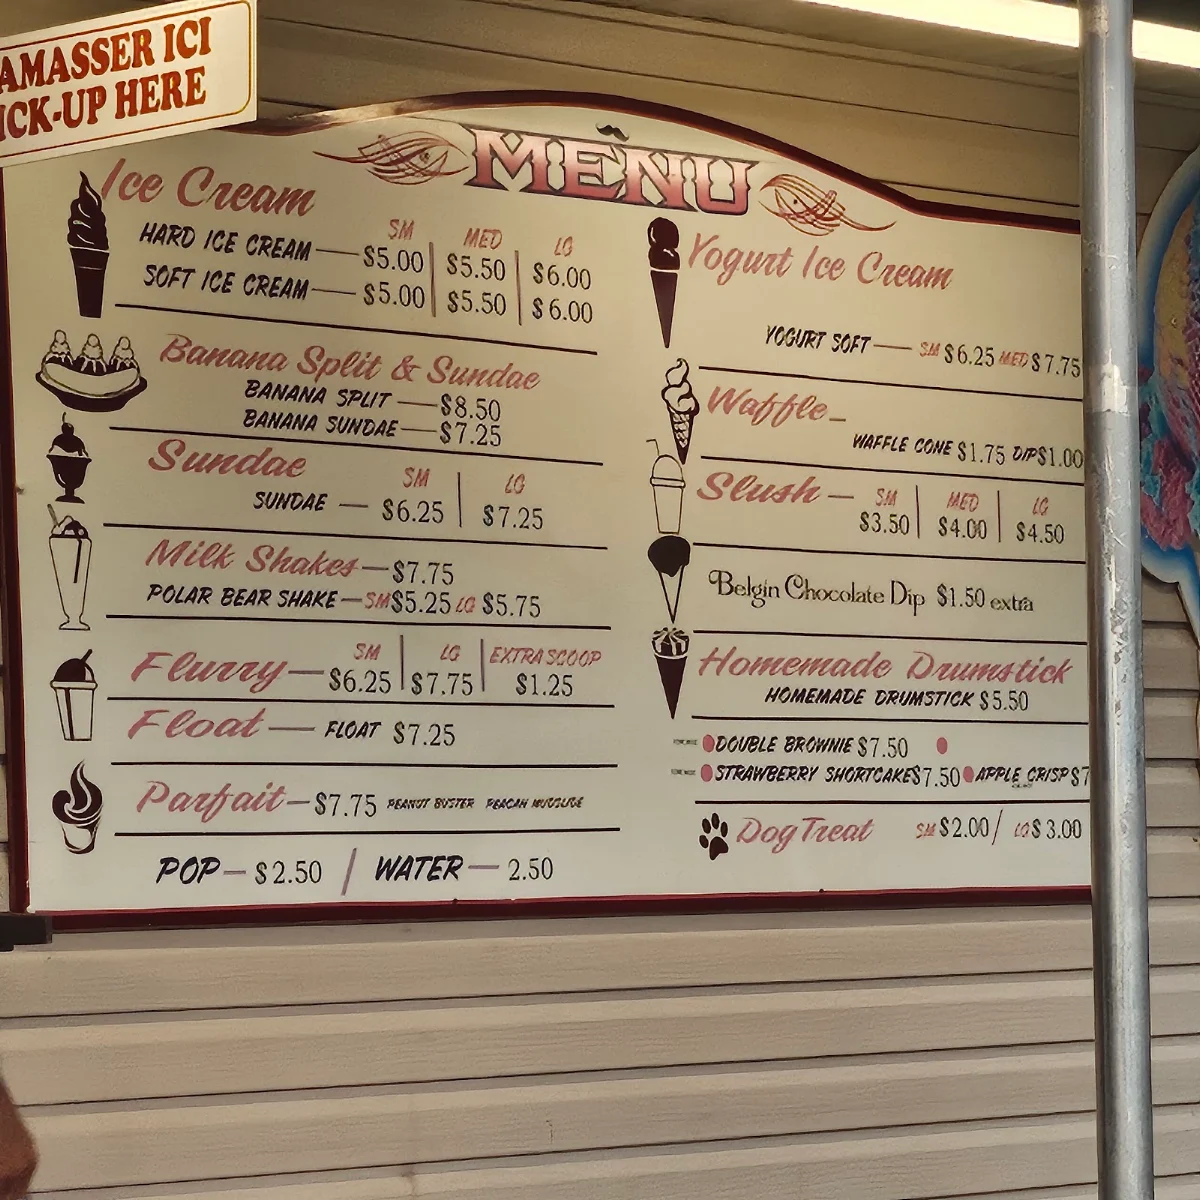 AMASSER ICI
ICK-UP HERE
MENU
Ice Cream
SM MED LG
HARD ICE CREAM $5.00 $5.50 $6.00
SOFT ICE CREAM $5.00 $5.50 $6.00
Banana Split & Sundae
BANANA SPLIT $8.50
BANANA SUNDAE $7.25
Sundae
SM LG
SUNDAE $6.25 $7.25
Milk Shakes $7.75
POLAR BEAR SHAKE SM $5.25 LG $5.75
SM LG EXTRA SCOOP
Flurry $6.25 $7.75 $1.25
Float FLOAT $7.25
Parfait $7.75 PEANUT BUSTER
POP $2.50 / WATER 2.50
Yogurt Ice Cream
YOGURT SOFT SM $6.25 MED $7.75
Waffle
WAFFLE CONE $1.75 DIP $1.00
Slush SM MED LG
$3.50 $4.00 $4.50
Belgin Chocolate Dip $1.50 extra
Homemade Drumstick
HOMEMADE DRUMSTICK $5.50
DOUBLE BROWNIE $7.50
STRAWBERRY SHORTCAKE $7.50 APPLE CRISP $7
Dog Treat SM $2.00 / LG $3.00